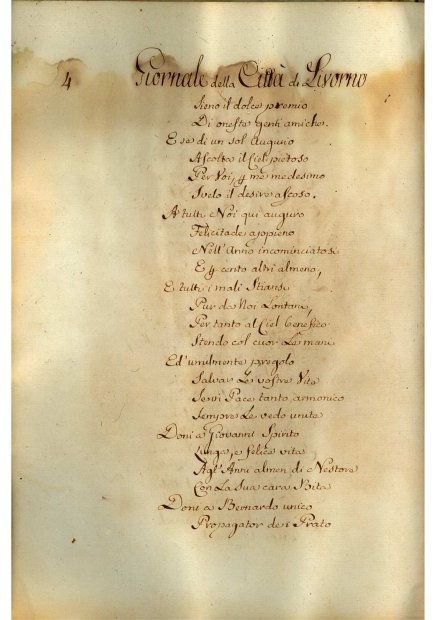 4 Giornale della Città di Livorno
Sieno il dolce premio
Di oneste genti amiche.
E se di un sol Auguro
Ascolta il Ciel pietoso
Per Voi, p me medesimo
Svelo il desire ascoso.
A' tutti Noi qui auguro
Felicitade appieno
Nell' Anno incominciatosi
E p cento altri almeno,
E tutti i mali Stiansi
Pur da Noi Lontani,
Per tanto al Ciel benefico
Stendo col cuor Le mani
Ed' umilmente pregolo
Salvar Le vostre Vite
In Pace tanto armonico
Sempre Le vedo unite
Doni a Giovanni Spirito
Lunga, e felice vita
Agl' Anni almen di Nestore
Con La Sua cara Bita
Doni a Bernardo unico
Propagator de i Prato